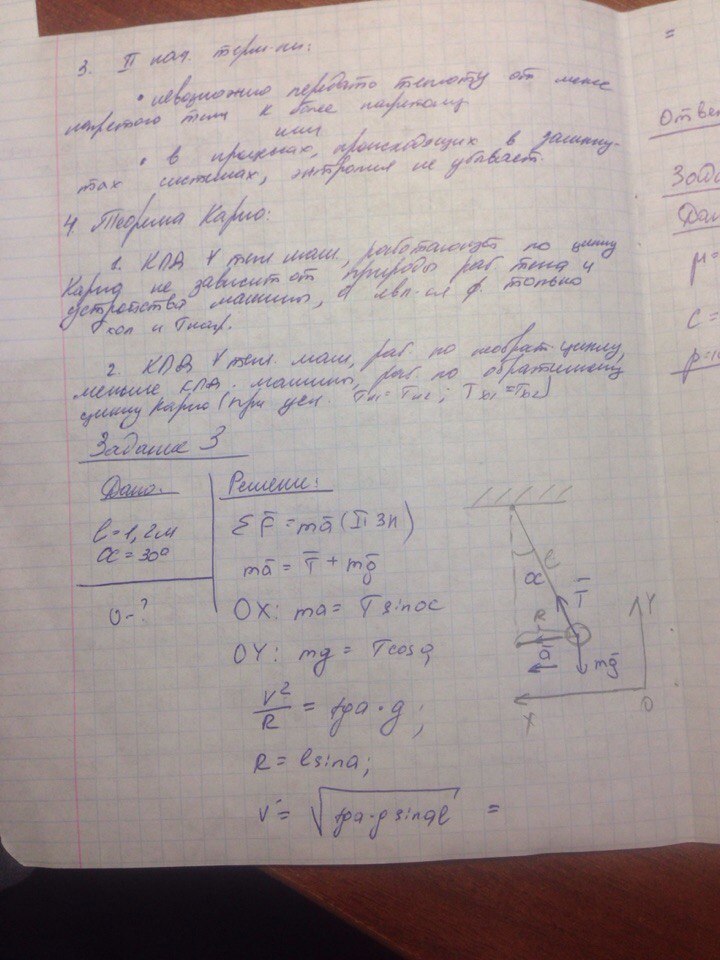 3. II нач. терм-ки:
• невозможно передать теплоту от менее
нагретого тела к более нагретому
или
• в процессах, происходящих в замкну-
тых системах, энтропия не убывает.
4. Теорема Карно:
1. КПД ∀ теп. маш, работающей по циклу
Карно не зависит от природы раб. тела и
устройства машины, а явл-ся ф. только
Tхол и Tнагр.
2. КПД ∀ теп. маш, раб. по необрат. циклу,
меньше КПД. машины, раб. по обратимому
циклу Карно (при усл. Tн1 = Tн2; Tх1 = Tх2)
Задание 3
Дано:
l = 1,2 м
α = 30°
υ - ?
Решение:
Σ F̄ = mā (II ЗН)
mā = T̄ + mḡ
OX: ma = T sinα
OY: mg = T cosα
V²/R = tgα · g;
R = l sinα;
V = √(tgα · g sinα l) =
α
l
T̄
R
ā
mḡ
Y
X
O
=
Отве
Зада
Дан
μ =
c =